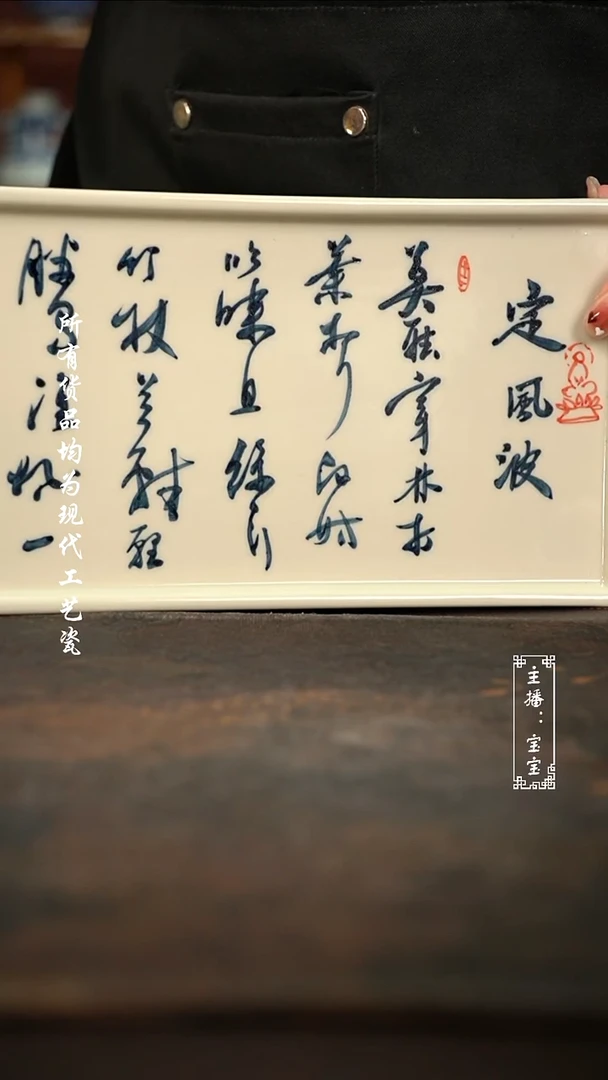 定風波
莫聽穿林打
葉聲何妨
吟嘯且徐行
竹杖芒鞋輕
勝馬誰怕一
所有货品均为现代工艺瓷
主播：宝宝